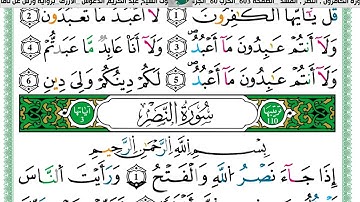 603 الصفحة
قُلْ يَٰٓأَيُّهَا ٱلْكَٰفِرُونَ 1 لَآ أَعْبُدُ مَا تَعْبُدُونَ
2 وَلَآ أَنتُمْ عَٰبِدُونَ مَآ أَعْبُدُ 3 وَلَآ أَنَا۠ عَابِدٞ مَّا عَبَدتُّمْ
4 وَلَآ أَنتُمْ عَٰبِدُونَ مَآ أَعْبُدُ 5 لَكُمْ دِينُكُمْ وَلِيَ دِينِ
ترتيبها 110 سُورَةُ ٱلنَّصْرِ آياتها
بِسْمِ ٱللَّهِ ٱلرَّحْمَٰنِ ٱلرَّحِيمِ
إِذَا جَآءَ نَصْرُ ٱللَّهِ وَٱلْفَتْحُ 1 وَرَأَيْتَ ٱلنَّاسَ